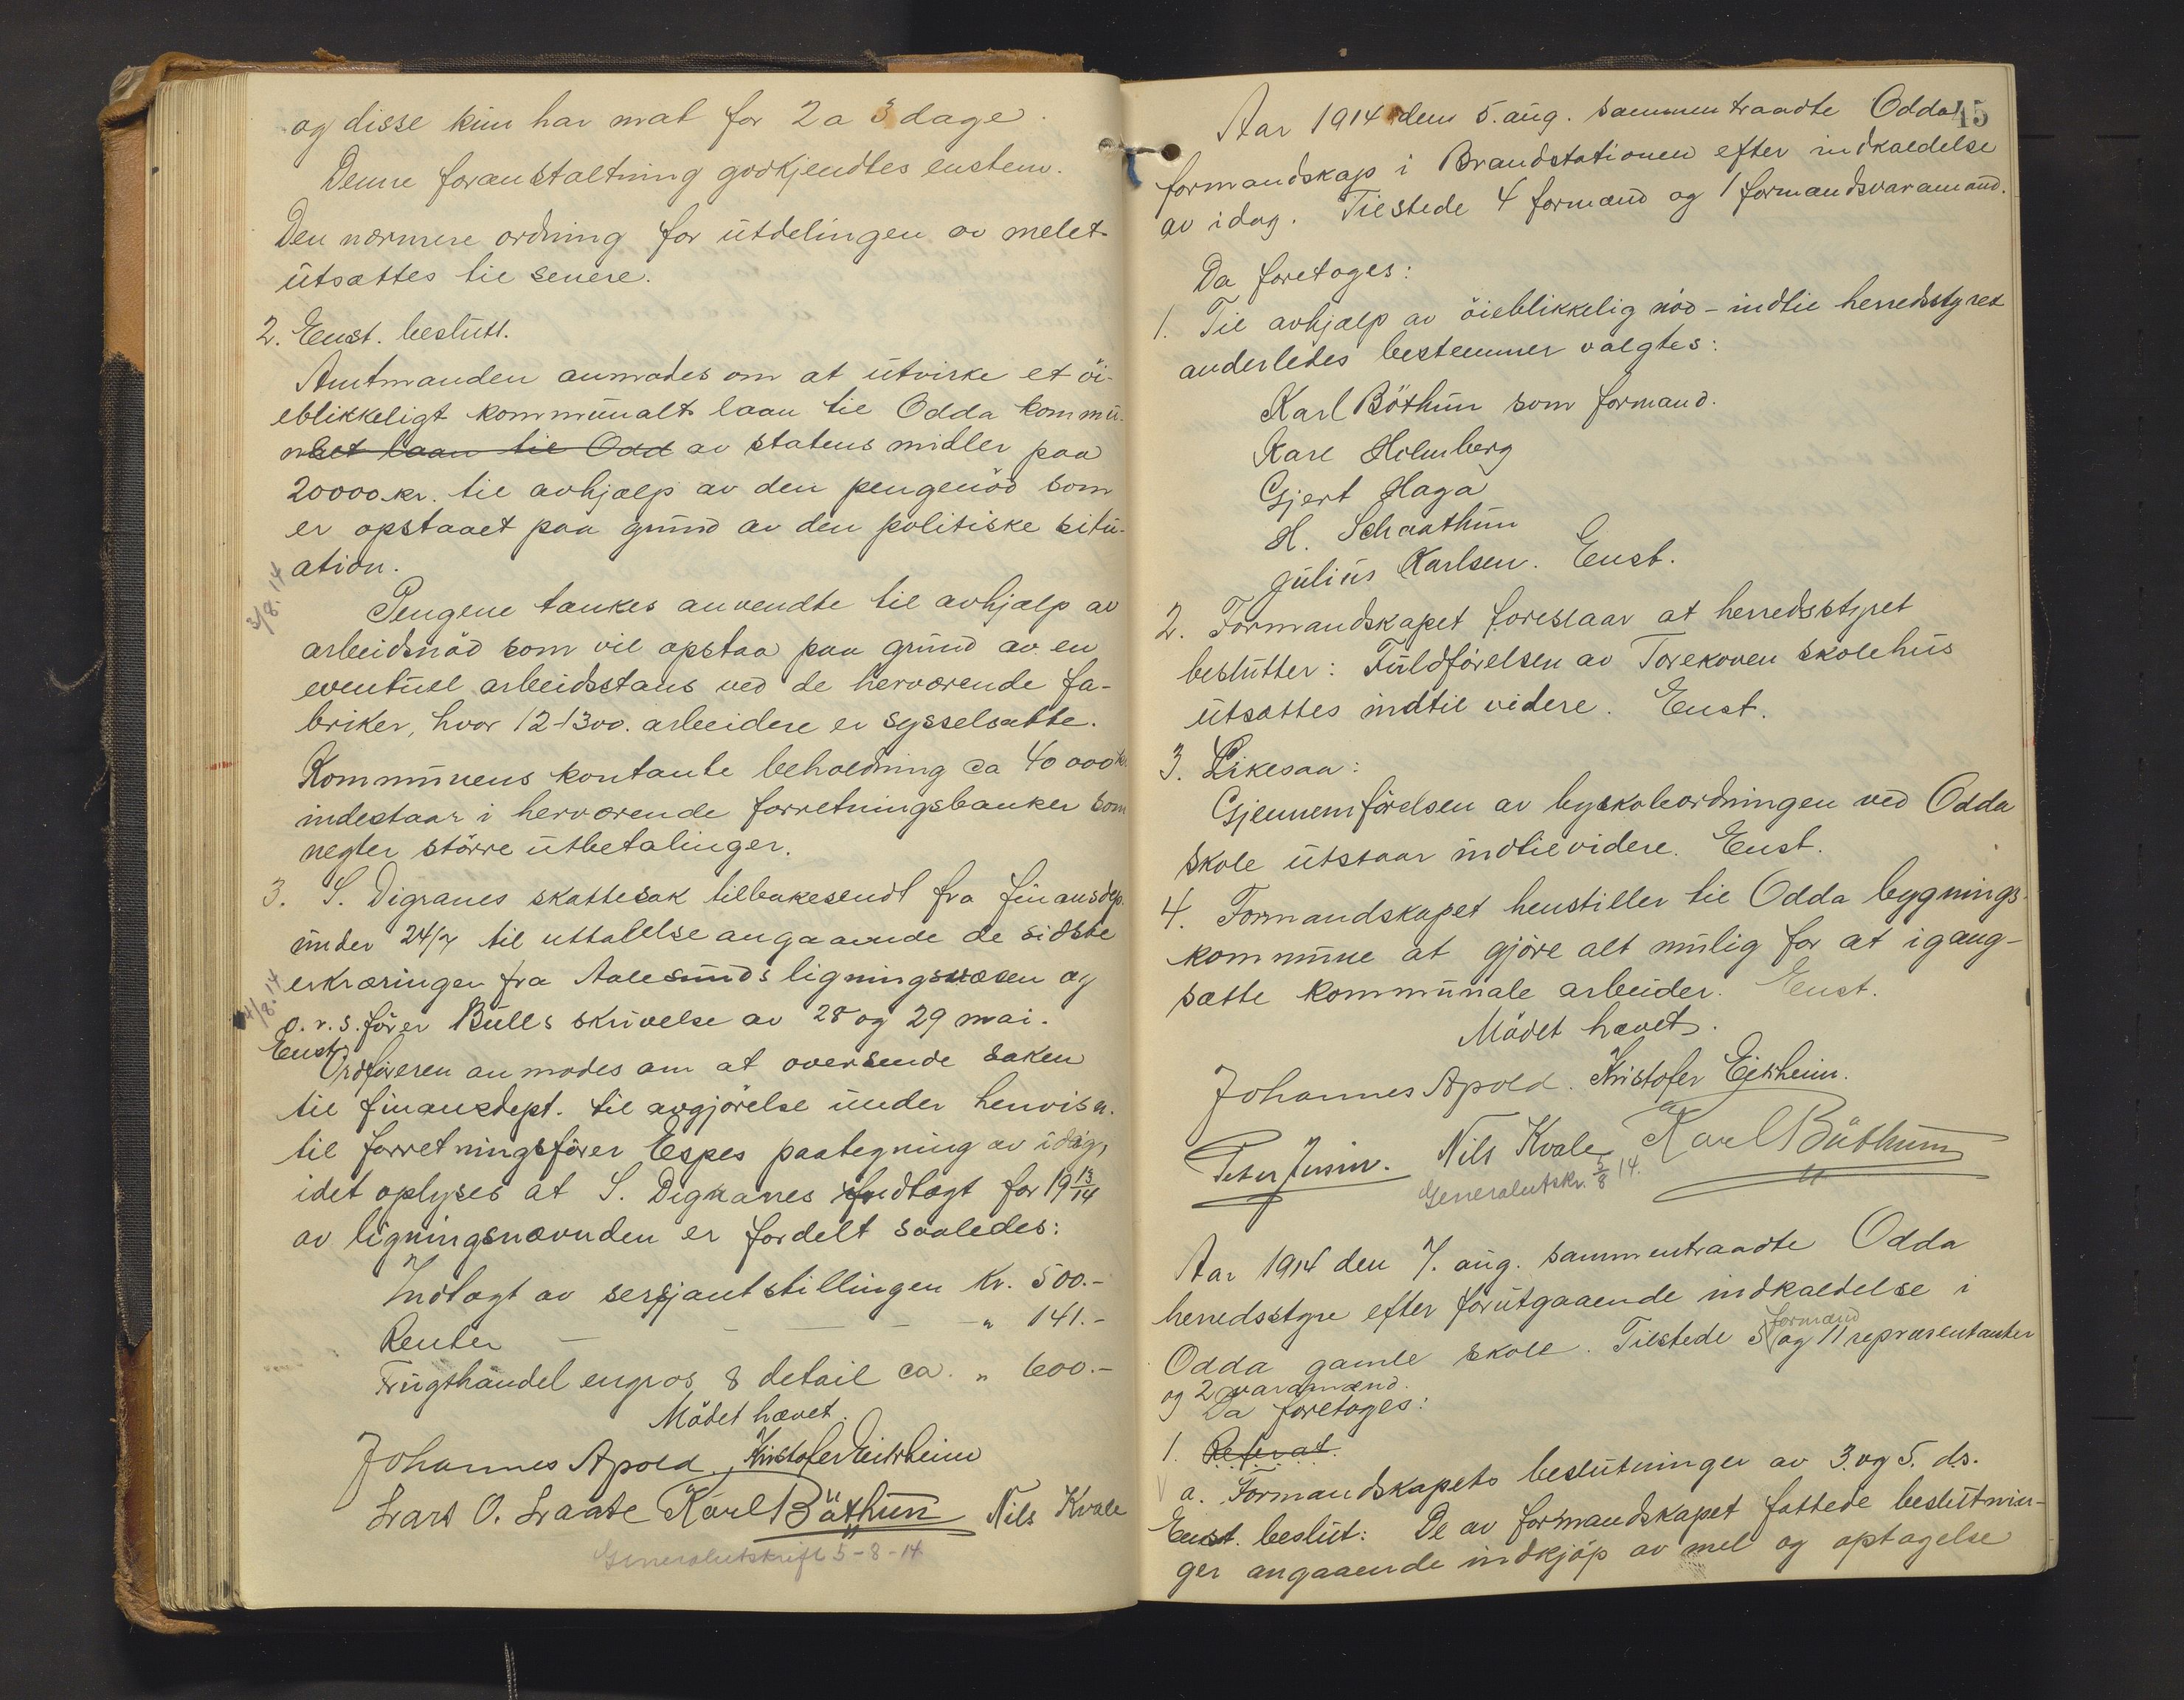 og disse kun har mat for 2 a 3 dage.
Denne foranstaltning godkjendtes enstem.
Den nærmere ordning for utdelingen av melet
utsattes til senere.
2. Enst. beslutt.
Amtmanden anmodes om at utvirke et öi-
eblikkeligt kommunalt laan til Odda kommu-
net laan til Odd av statens midler paa
20000 kr. til avhjælp av den pengenöd som
er opstaaet paa grund av den politiske situ-
ation.
3/8.14
Pengene tænkes anvendte til avhjælp av
arbeidsnöd som vil opstaa paa grund av en
eventuel arbeidsstans ved de herværende fa-
briker, hvor 12-1300. arbeidere er sysselsatte.
Kommunens kontante beholdning ca 40 000 kr.
indestaar i herværende forretningsbanker som
negter större utbetalinger.
3. S. Digranes skattesak tilbakesendt fra finansdep.
under 24/7 til uttalelse angaaende de sidste
erkræringer fra Aalesunds ligningsvæsen og
4/8.14
o.r.s.förer Bulls skrivelse av 28 og 29 mai.
Enst.
Ordföreren anmodes om at oversende saken
til finansdept. til avgjörelse under henvisn.
til forretningsförer Espes paategning av idag,
idet oplyses at S. Digranes indtægt for 19 13/14
av ligningsnævnden er fordelt saaledes:
Indtægt av sersjantstillingen Kr. 500.-
Renter — — — — " 141.-
Frugthandel engros & detail ca. " 600.-
Mödet hævet.
Johannes Apold. Kristofer Eitrheim
Lars O. Laate Karl Böthun Nils Kvale
Generalutskrift 5-8-14
45
Aar 1914 den 5. aug. sammentraadte Odda
formandskap i Brandstationen efter indkaldelse
av idag. Tilstede 4 formænd og 1 formandsvaramand.
Da foretoges:
1. Til avhjælp av öieblikkelig nöd - indtil herredsstyret
anderledes bestemmer valgtes:
Karl Böthun som formand.
Karl Holmberg
Gjert Haga
H. Schaathun
Julius Karlsen. Enst.
2. Formandskapet foreslaar at herredsstyret
beslutter: Fuldförelsen av Torekoven skolehus
utsættes indtil videre. Enst.
3. Likesaa:
Gjennemförelsen av byskoleordningen ved Odda
skole utstaar indtilvidere. Enst.
4. Formandskapet henstiller til Odda bygnings-
kommune at gjöre alt mulig for at igang-
sætte kommunale arbeider. Enst.
Mödet hævet.
Johannes Apold. Kristofer Eitrheim.
Peter Jensen. Nils Kvale Karl Böthun
Generalutskr. 5/8 14.
Aar 1914 den 7. aug. sammentraadte Odda
herredsstyre efter forutgaaende indkaldelse i
formænd
Odda gamle skole. Tilstede 5 og 11 repræsentanter
og 2 varamænd.
Da foretoges:
1. Referat.
a. Formandskapets beslutninger av 3. og 5. ds.
Enst. beslut: De av formandskapet fattede beslutnin-
ger angaaende indkjöp av mel og optagelse